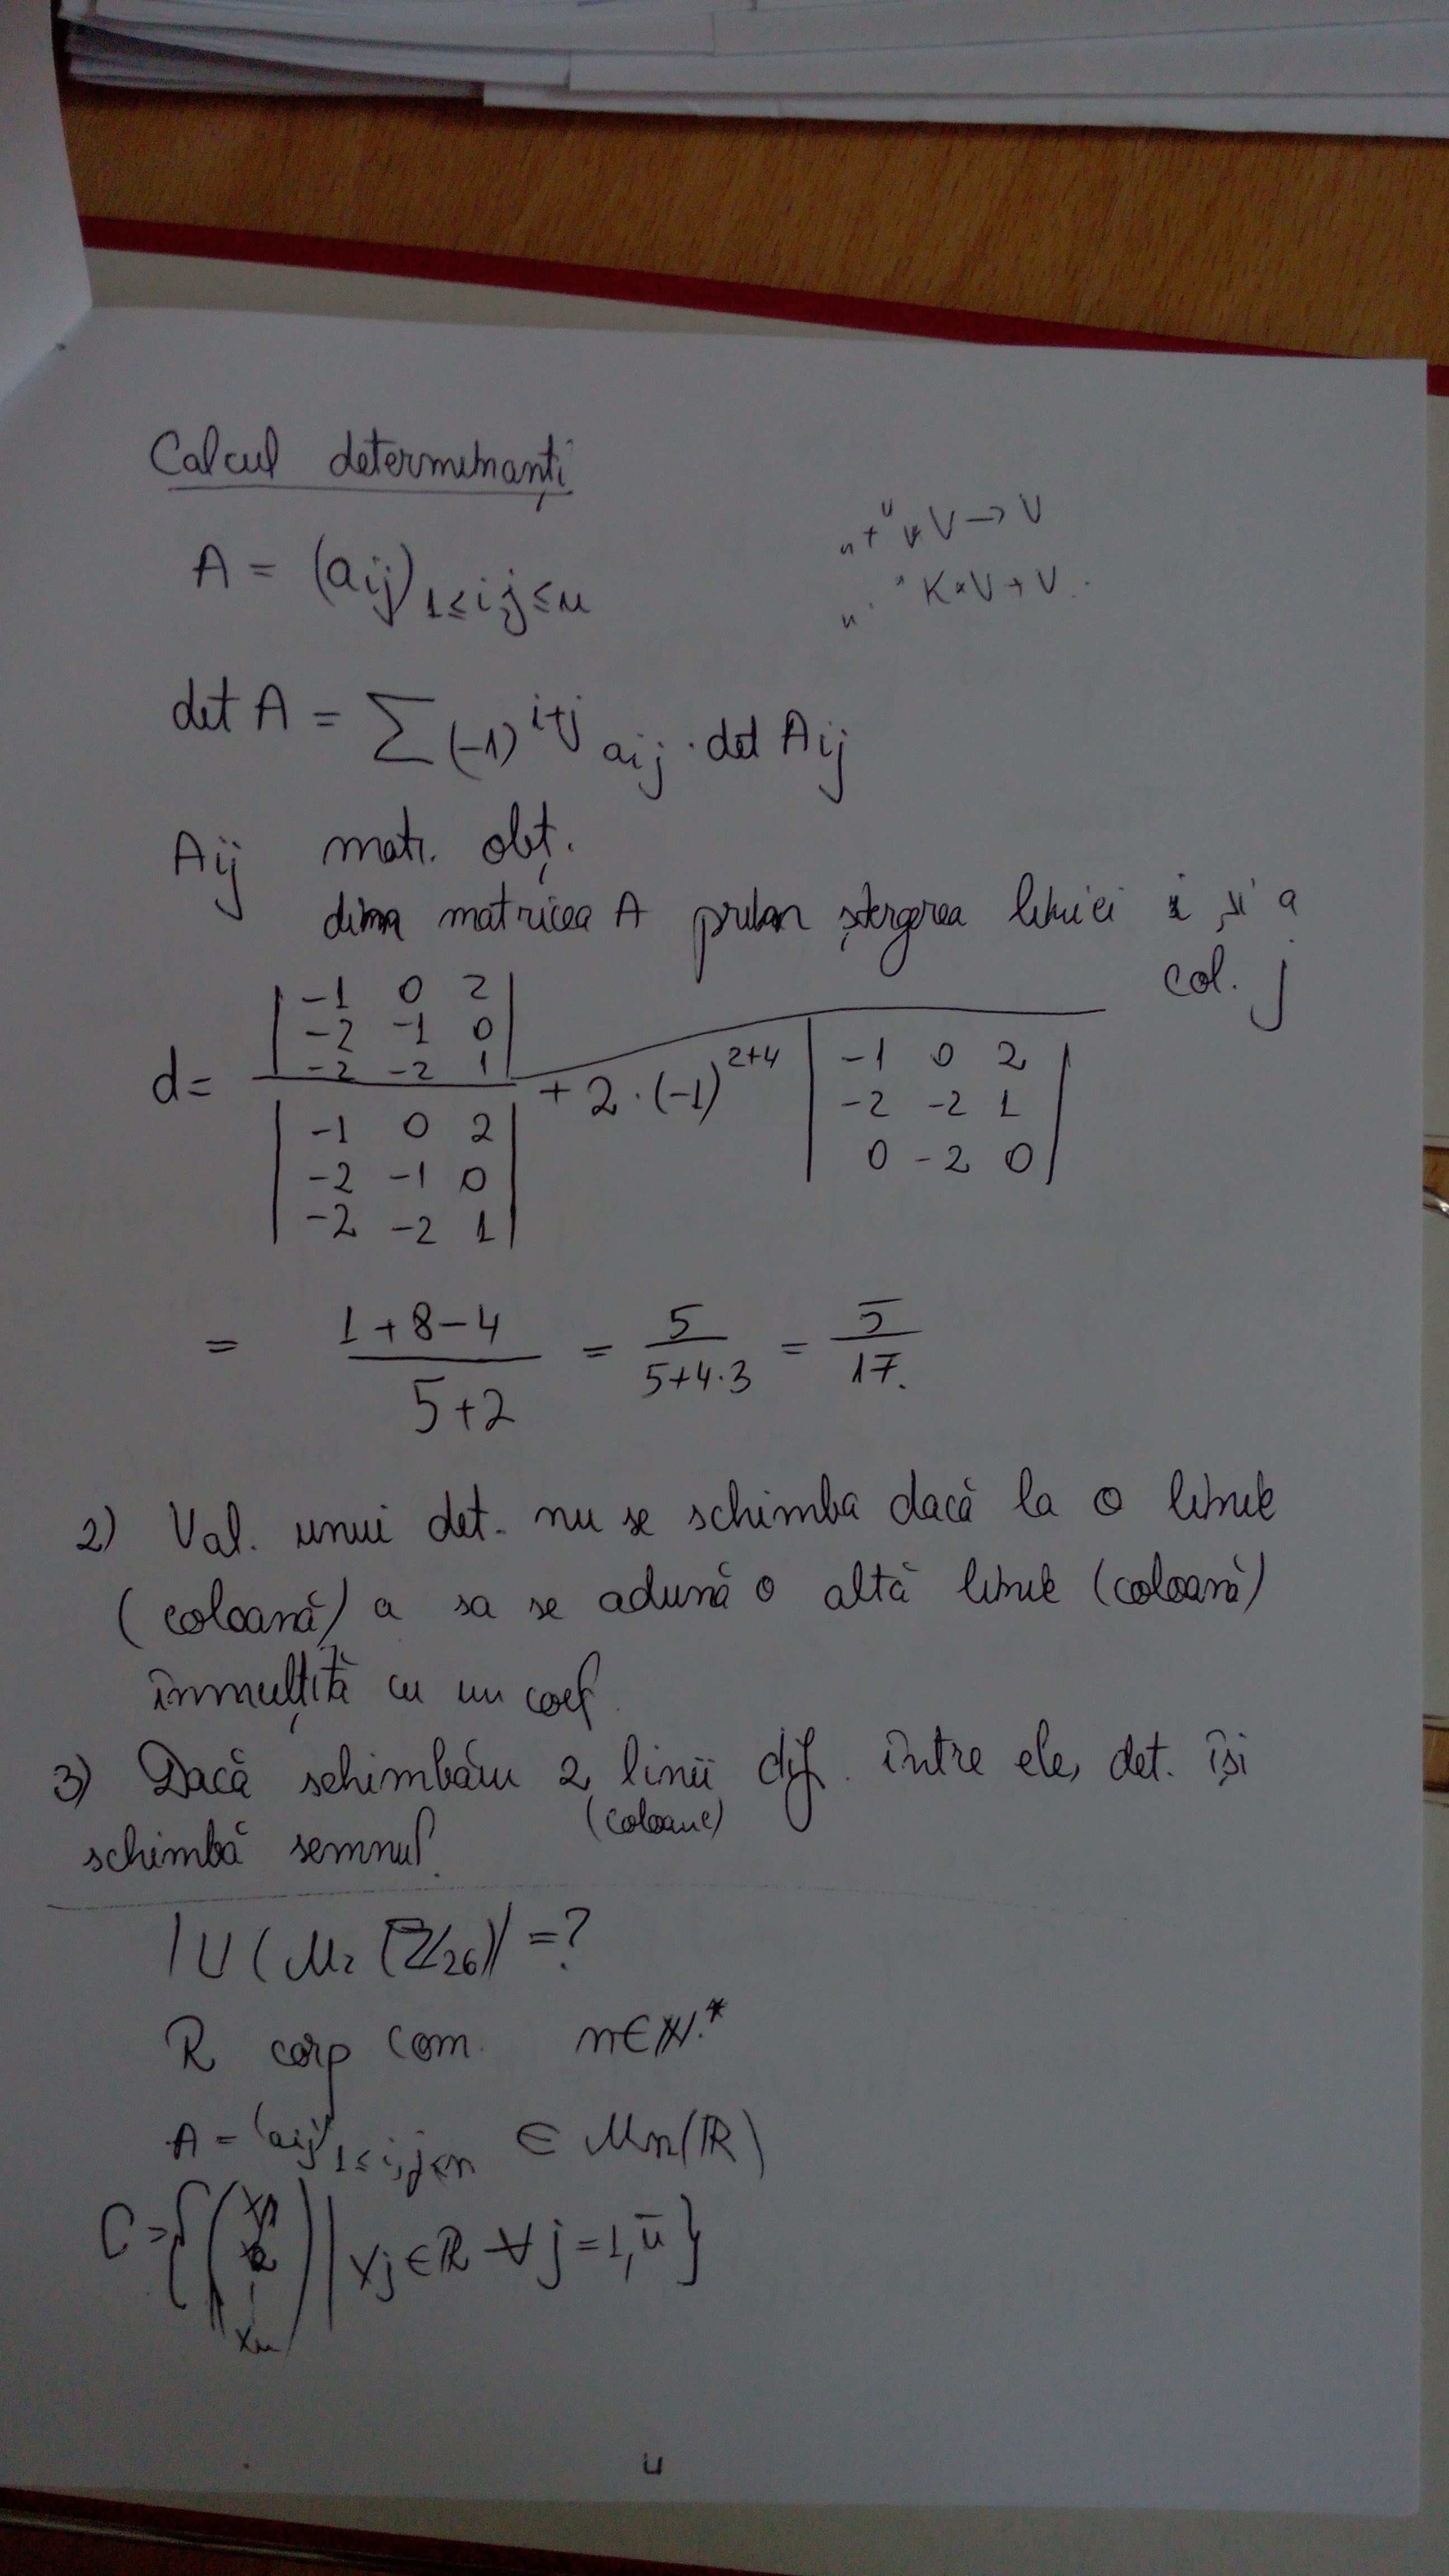 Calcul determinanți
A = (aij) 1≤i,j≤n
"+" V×V → V
"·" K×V → V
det A = Σ (-1)^{i+j} aij · det Aij
Aij matr. obț.
din matricea A prin ștergerea liniei i și a
col. j
d = |-1 0 2; -2 -1 0; -2 -2 1| / (|-1 0 2; -2 -1 0; -2 -2 1| + 2·(-1)^{2+4} |-1 0 2; -2 -2 1; 0 -2 0|)
= (1+8-4)/(5+2) = 5/(5+4·3) = 5/17.
2) Val. unui det. nu se schimba dacă la o linie
(coloană) a sa se adună o altă linie (coloană)
înmulțită cu un coef.
3) Dacă schimbăm 2 linii dif. între ele, det. își
(coloane)
schimbă semnul.
|U(M₂(ℤ₂₆)| = ?
R corp com. n∈ℕ.*
A = (aij) 1≤i,j≤n ∈ Mn(R)
C = {(x1 x2 ⋮ xn) | xj ∈ R ∀ j = 1,n̅}
4